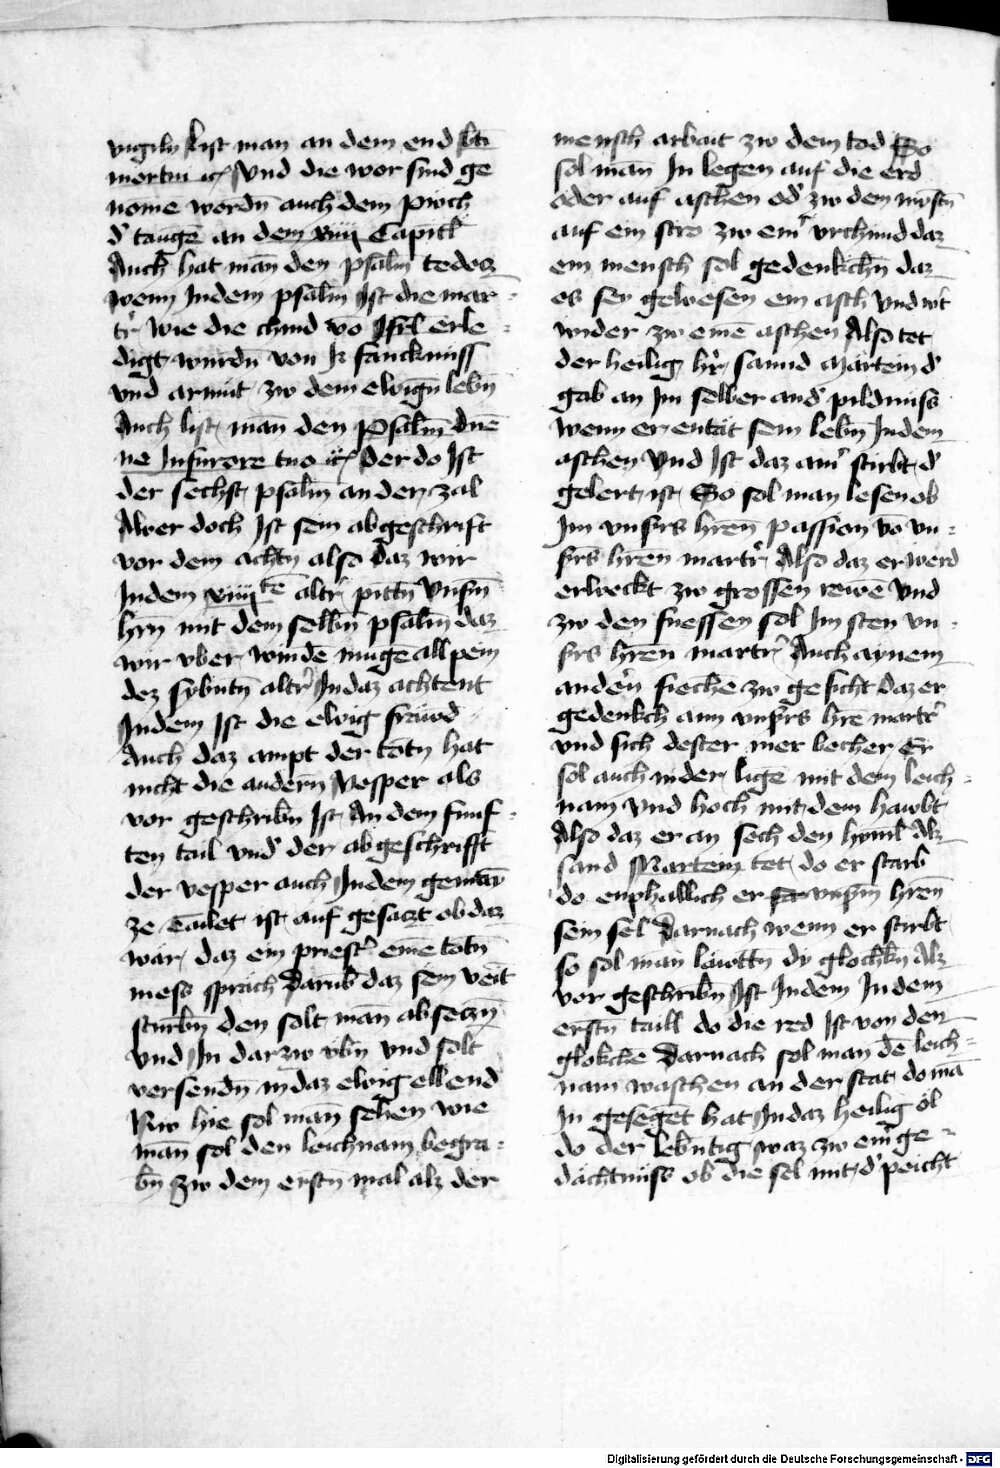 vigily list man an dem end btī
mortui ꝛc Vnd die wor sind ge
nome wordn̄ auch dem puͦch
dʼ tauge͂ an dem xiiij Capitl̄
Auch hat man̄ den psalm̄ te deoꝫ
wenn Indem psalm̄ Ist die mar-
trʼ wie die chind vo͂ Isrl̄ erle-
digt wurdn̄ von Ir fancknuss
vnd armüt zw dem ewign̄ lebn̄
Auch list man̄ den Psalm̄ Dn̄e
ne Infurore tuo ꝛc Der do Ist
der sechst psalm̄ an der zal
Awer doch Ist sein abgeschrift
vor dem achtn̄ also daz wir
Indem viiijte͂ altrʼ pittn̄ vnsn̄
hrn̄ mit dem selbn̄ psalm̄ daz
wir vber winde͂ muge all pein
dez sybntn̄ altrʼ Indaz achtent
Indem Ist die ewig frawd
Auch daz ampt der totn̄ hat
nicht die andern̄ Vesper als
vor geschribn̄ Ist An dem funf-
ten tail vnd der abgeschrifft
der vesper auch Indem gemain
ze tailet ist auf gesaczt ob daz
wär daz ein priestʼ eine͂ totn̄
mess sprach Darub̄ daz sein veīt
sturbn̄ den solt man̄ abseczn̄
vnd In darzw vbn̄ vnd solt
versendn̄ in daz ewig ellend
Nw hie sol man̄ sehen wie
man̄ sol den leichnam begra-
bn̄ Zw dem erstn̄ mal alz der
mensch arbait zw dem tod So
sol man̄ In legen auf die erd
oder auf aschen odʼ zw dem minstn̄
auf ein stro zw eimʼ vrchund daz
ein mensch sol gedenkchn̄ daz
es sey gewesen ein asch vnd wʼt
wider zw eine͂ aschen Also tet
der heilig hrʼ sannd Märtein dʼ
gab an Im selber andʼ pildnuss
wenn er entät sein lebn̄ Indem
aschen vnd Ist daz aimʼ stirbt dʼ
gelert ist So sol man lesen ob
Im vnsrs hren̄ passion vo͂ vn-
srs hren̄ martrʼ Also daz er werd
erweckt zw grossen rewe͂ vnd
zw den fuessen sol Im sten vn-
srs hren̄ martrʼ Auch aynem
andern̄ sieche zw gesicht daz er
gedenkch ann vnsrs hre͂ martrʼ
vnd sich dester mer becher Er
sol auch nider lige͂ mit dem leich-
nam vnd hoch mit dem hawbt
Also daz er an sech den hyml̄ Alz
sand Martein tet do er starb
do enphallich er vnsm̄ hren̄
sein sel Darnach wenn er stirbt
so sol man läwttn̄ dy glochkn̄ Alz
vor geschribn̄ Ist Indem Indem
erstn̄ taill do die red Ist von den
glokche͂ Darnach sol man de͂ leich-
nam waschen an der stat do ma͂
In geseget hat Indaz heilig ol
do der lebntig waz zw eimʼ ge-
dächtnuss ob die sel mit dʼ peicht
Digitalisierung gefördert durch die Deutsche Forschungsgemeinschaft - DFG